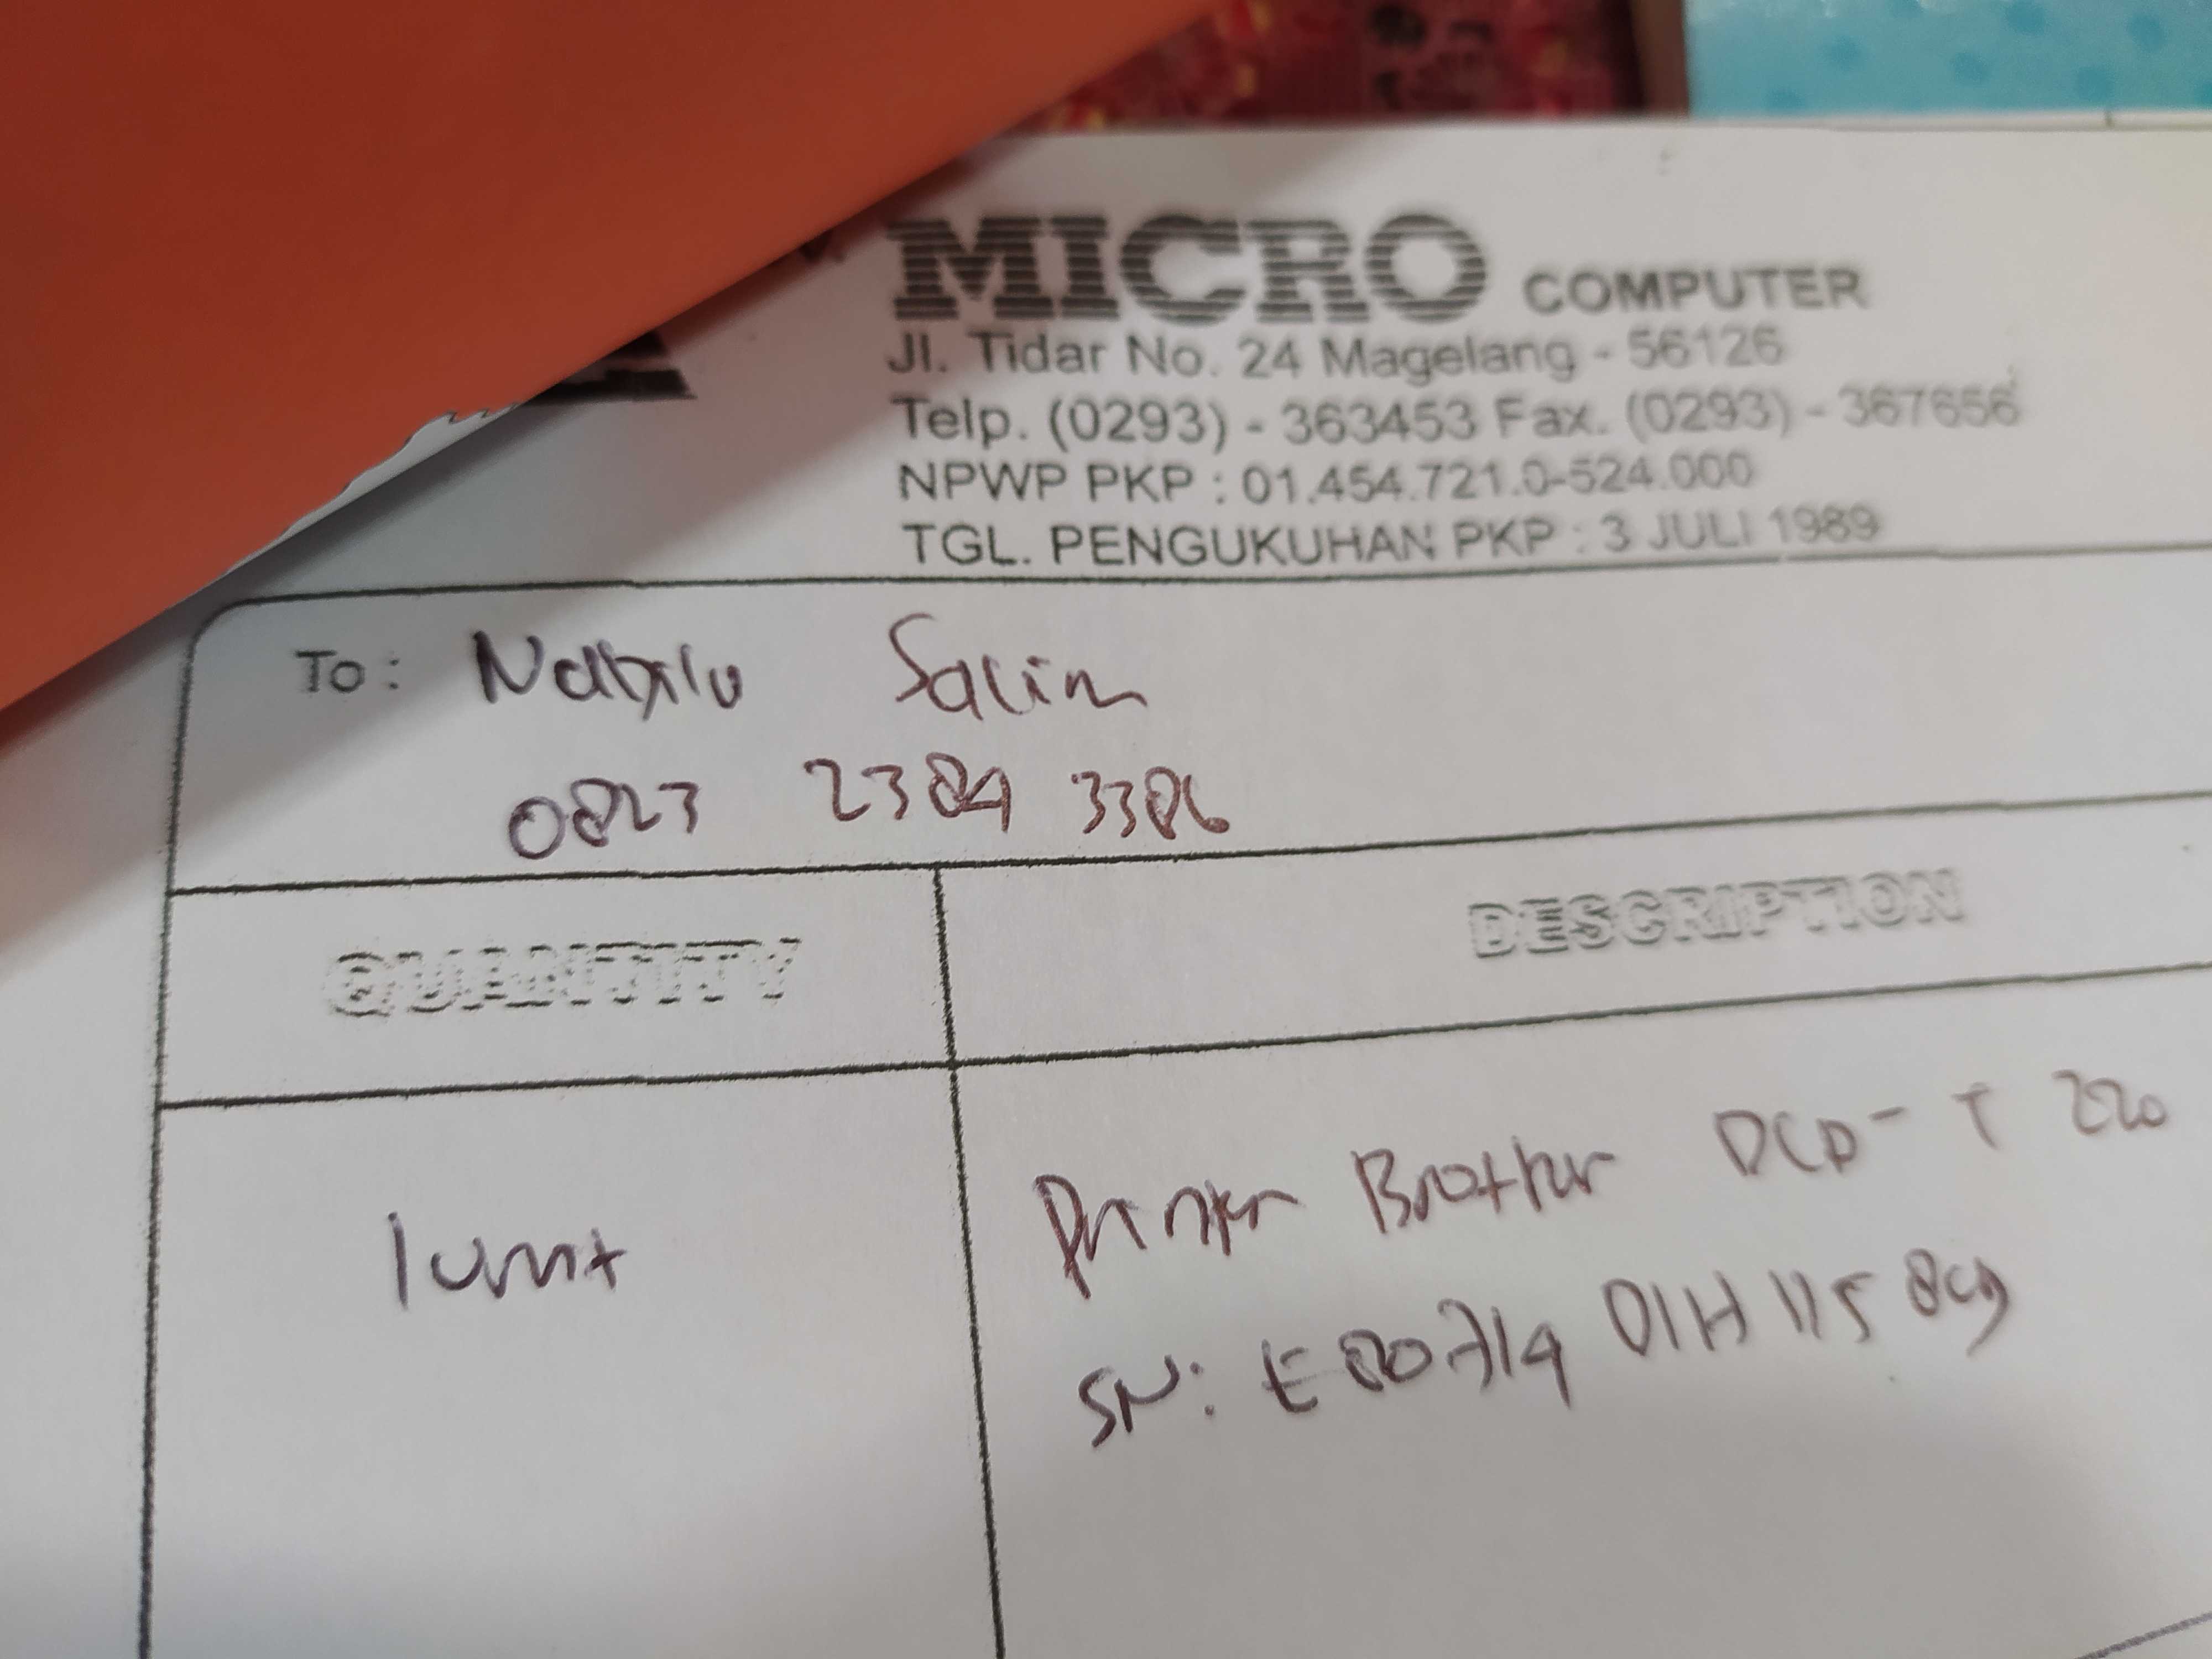 MICRO COMPUTER
Jl. Tidar No. 24 Magelang - 56126
Telp. (0293) - 363453 Fax. (0293) - 367656
NPWP PKP : 01.454.721.0-524.000
TGL. PENGUKUHAN PKP : 3 JULI 1989
To : Salim
0823 2384 3386
QUANTITY DESCRIPTION
1 unit Printer Brother DCP-T 220
SN: